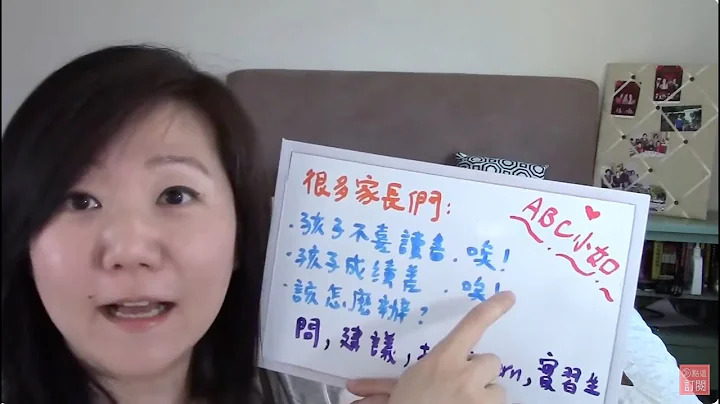 很多家長們:
ABC小如
·孩子不喜讀書.唉!
·孩子成績差.唉!
·該怎麼辦?
問,建議, 實習生
點這
訂閱